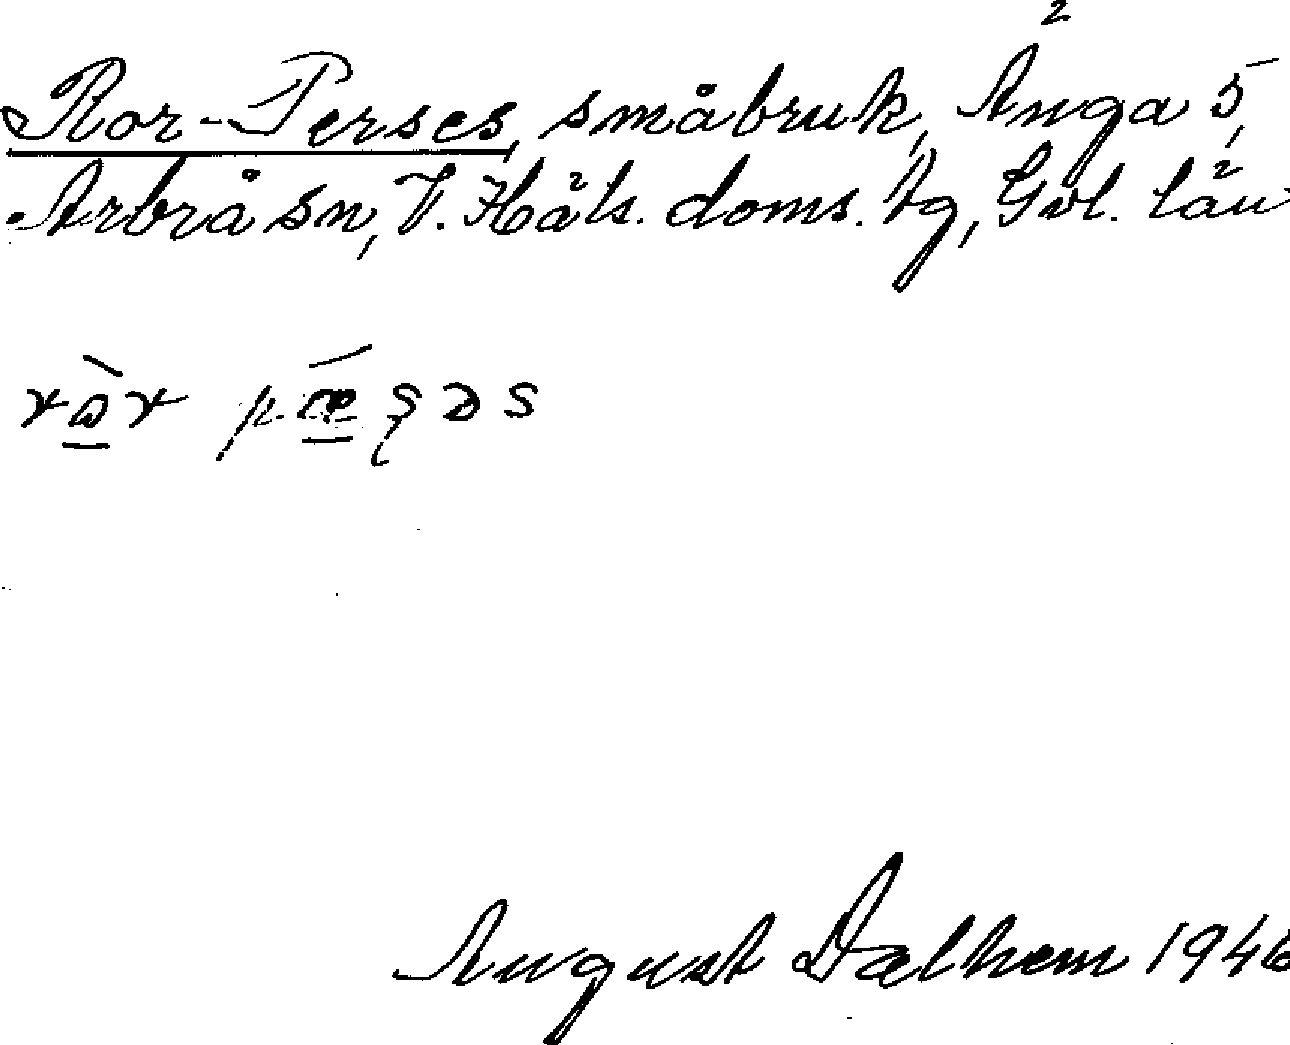 Ror-Perses, småbruk, Änga 5,
Arbrå sn, V. Häls. doms. tg, Gvl. län
August Dalhem 1946